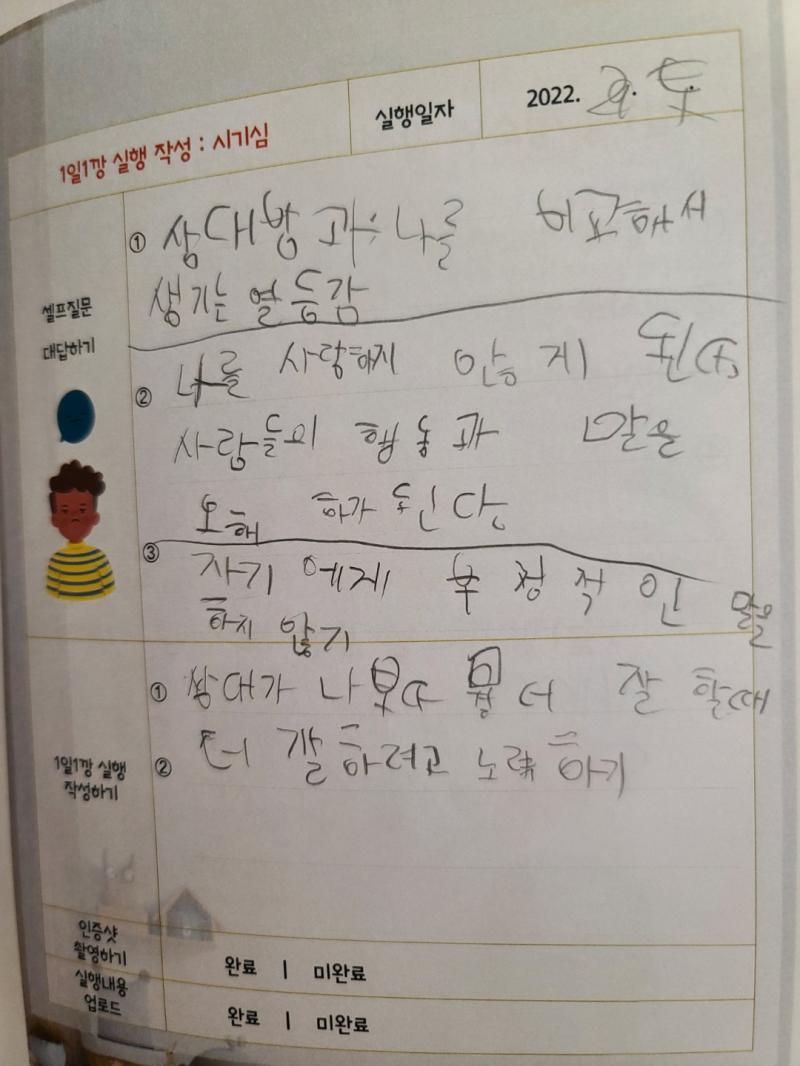 1일1깡 실행 작성 : 시기심
실행일자
2022.
셀프질문
대답하기
① 상대방과 나를 비교해서
생기는 열등감
② 나를 사랑하지 않게 된다.
사람들의 행동과 말을
오해 하가 된다
③ 자기 에게 부정적인 말을
하지 않기
1일1깡 실행
작성하기
① 상대가 나보다 더 잘 할때
② 더 잘 하려고 노력 하기
인증샷
촬영하기
완료 | 미완료
실행내용
업로드
완료 | 미완료